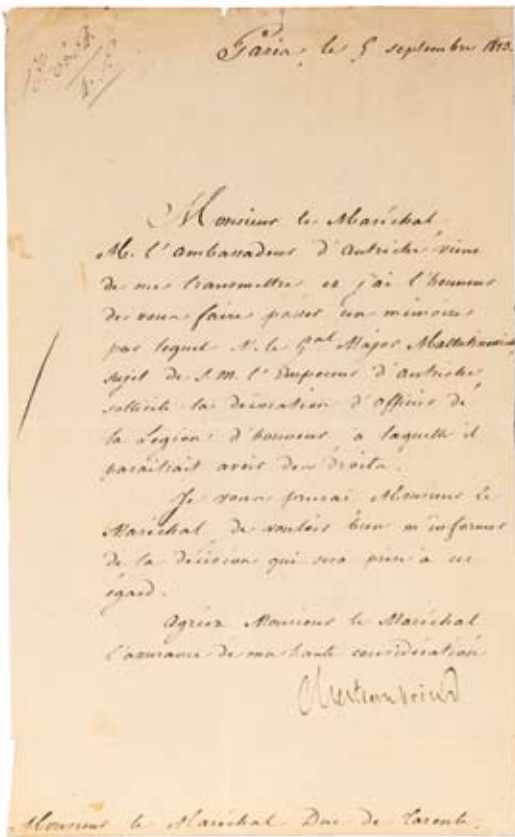 Paris, le 5 septembre
Monsieur le Maréchal
M. l'ambassadeur d'Autriche vient
de me transmettre et j'ai l'honneur
de vous faire passer un mémoire
par lequel M. le Gal Major
sujet de S. M. l'Empereur d'Autriche,
sollicite la décoration d'officier de
la Légion d'honneur à laquelle il
paraîtrait avoir des droits.
Je vous prierai Monsieur le
Maréchal de vouloir bien m'informer
de la décision qui sera prise à cet
égard.
Agréez Monsieur le Maréchal
l'assurance de ma haute considération
Chateaubriand
Monsieur le Maréchal Duc de Tarente.